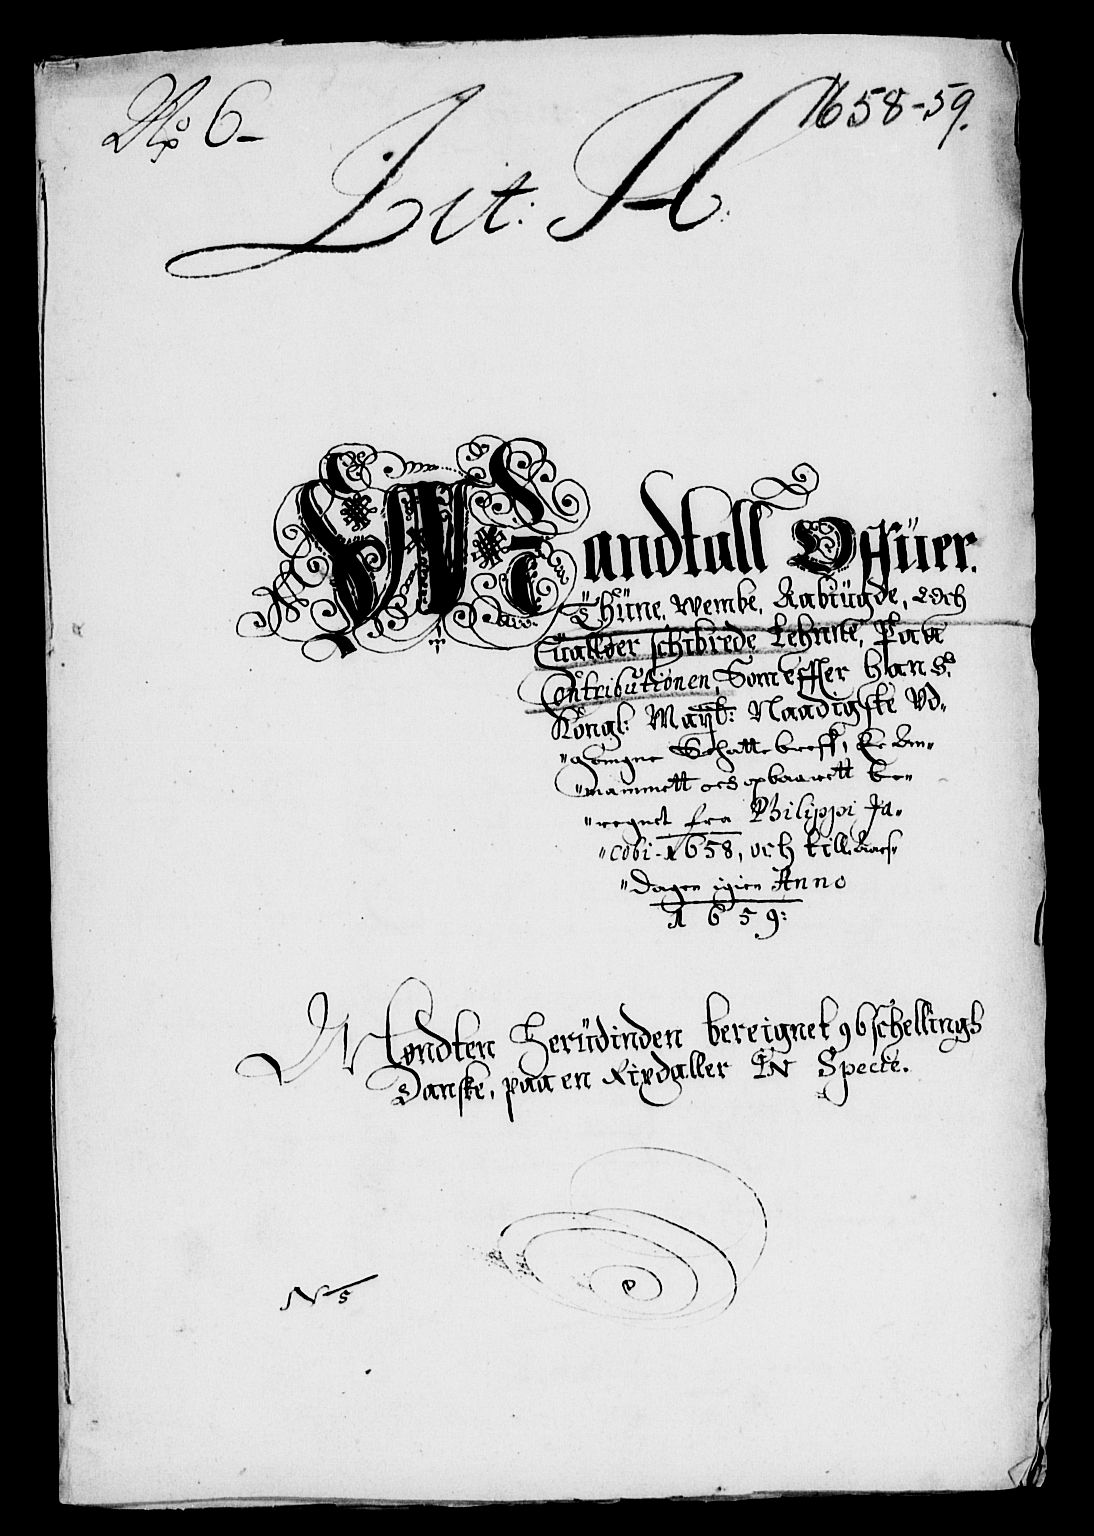 No 6
1658-59.
Lit: H:
Mandtall Offuer.
Thüne, Wembe, Aabiügde, och
Huallöer schibrede Lehnite, Paa
Contributionen, Som effter Hans:
Kongl: Maytt: Naadigste Vd-
"gangne Schattebreff, er An-
"nammett och opbaarett be-
"regnet fra Philippi Ja-
"cobi 1658, och till Aars
"Dagen igien Anno
1659:
Mÿndten herüdinden bereignet 96 schellings
Danske, paa en Rixdaller IN Specie.
No 5